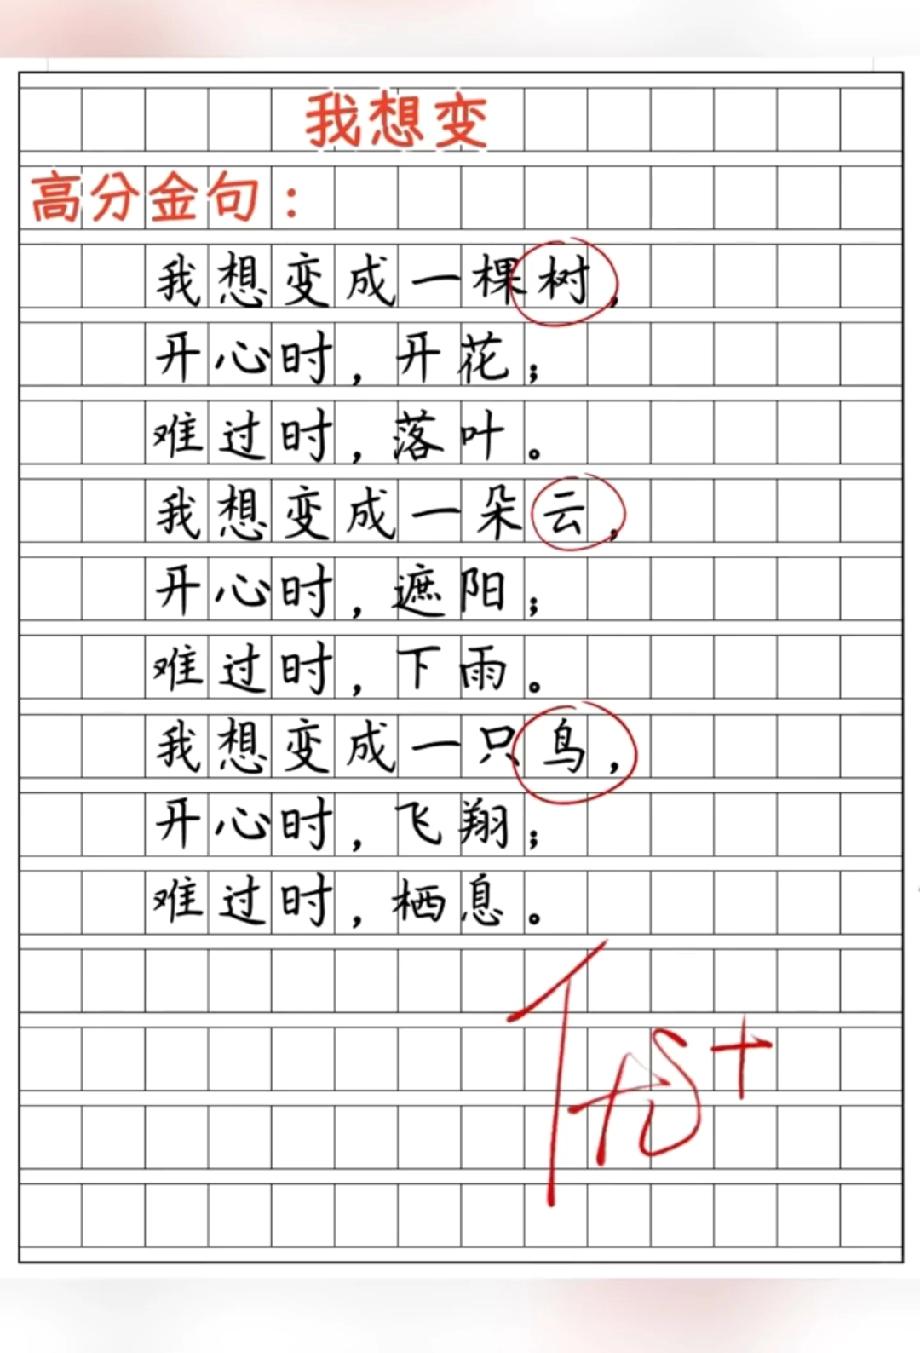 我想变
高分金句：
我想变成一棵树，
开心时，开花；
难过时，落叶。
我想变成一朵云，
开心时，遮阳；
难过时，下雨。
我想变成一只鸟，
开心时，飞翔；
难过时，栖息。